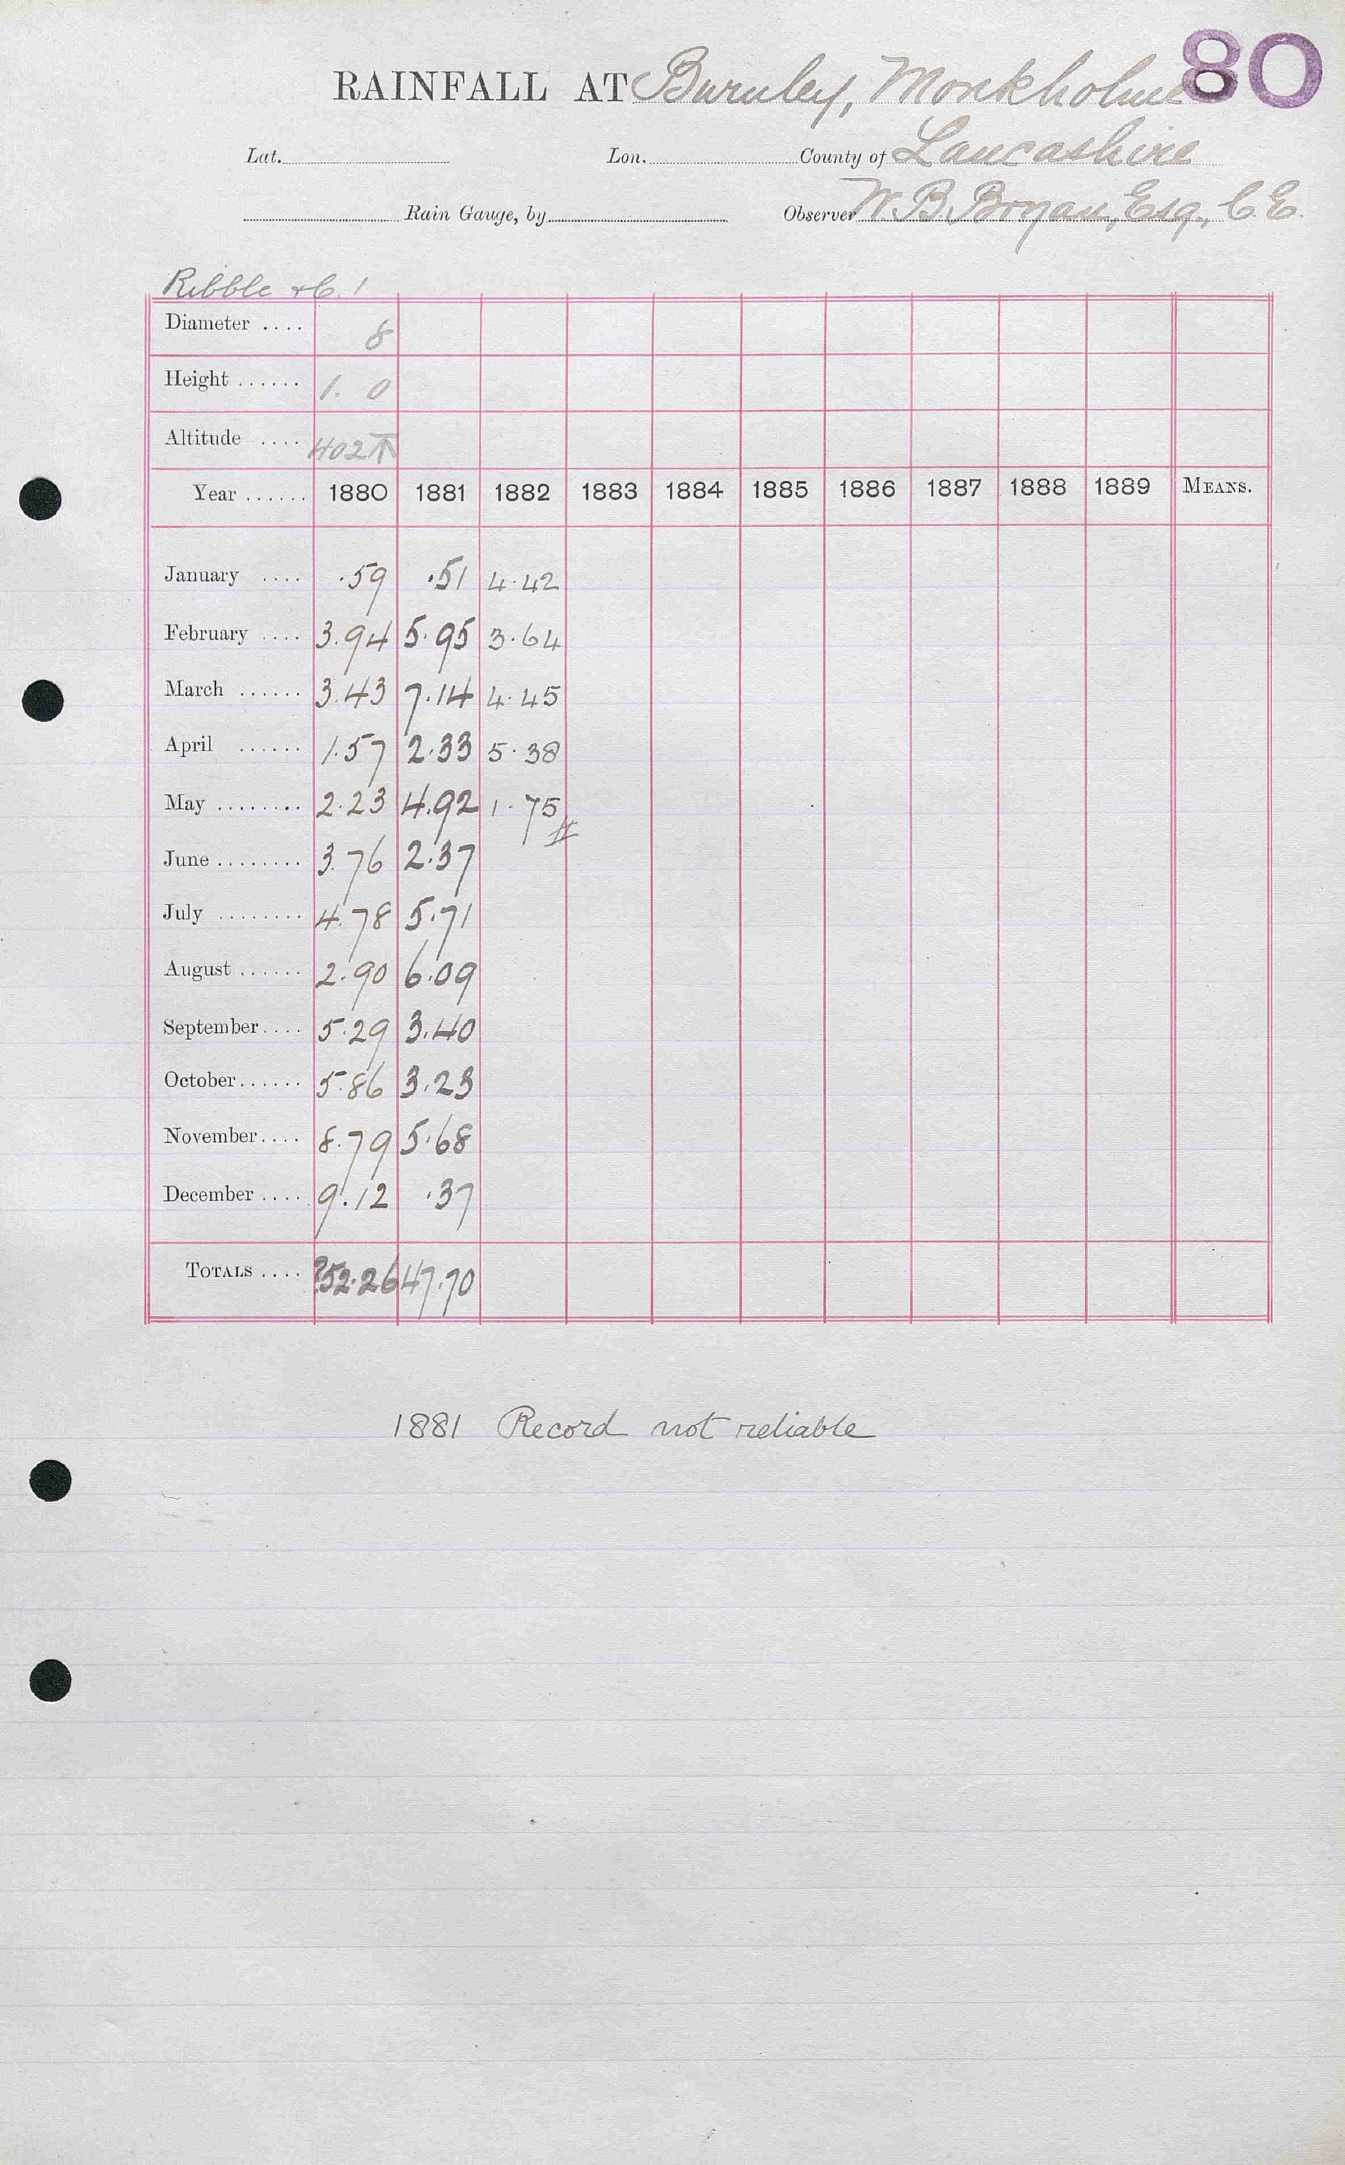 80
RAINFALL AT Burnley, Monkholme
Lat. Lon. County of Lancashire
Rain Gauge, by Observer W. B. Bryan, Esq., C.E.
Ribble &c. 1
Diameter .... 8
Height ...... 1. 0
Altitude .... 402
Year ...... 1880 1881 1882 1883 1884 1885 1886 1887 1888 1889 MEANS.
January .... .59 .51 4.42
February .... 3.94 5.95 3.64
March ...... 3.43 7.14 4.45
April ...... 1.57 2.33 5.38
May ........ 2.23 4.92 1.75
June ........ 3.76 2.37
July ........ 4.78 5.71
August ...... 2.90 6.09
September .... 5.29 3.40
October ...... 5.86 3.23
November .... 8.79 5.68
December .... 9.12 .37
TOTALS .... ?52.26 47.70
1881 Record not reliable